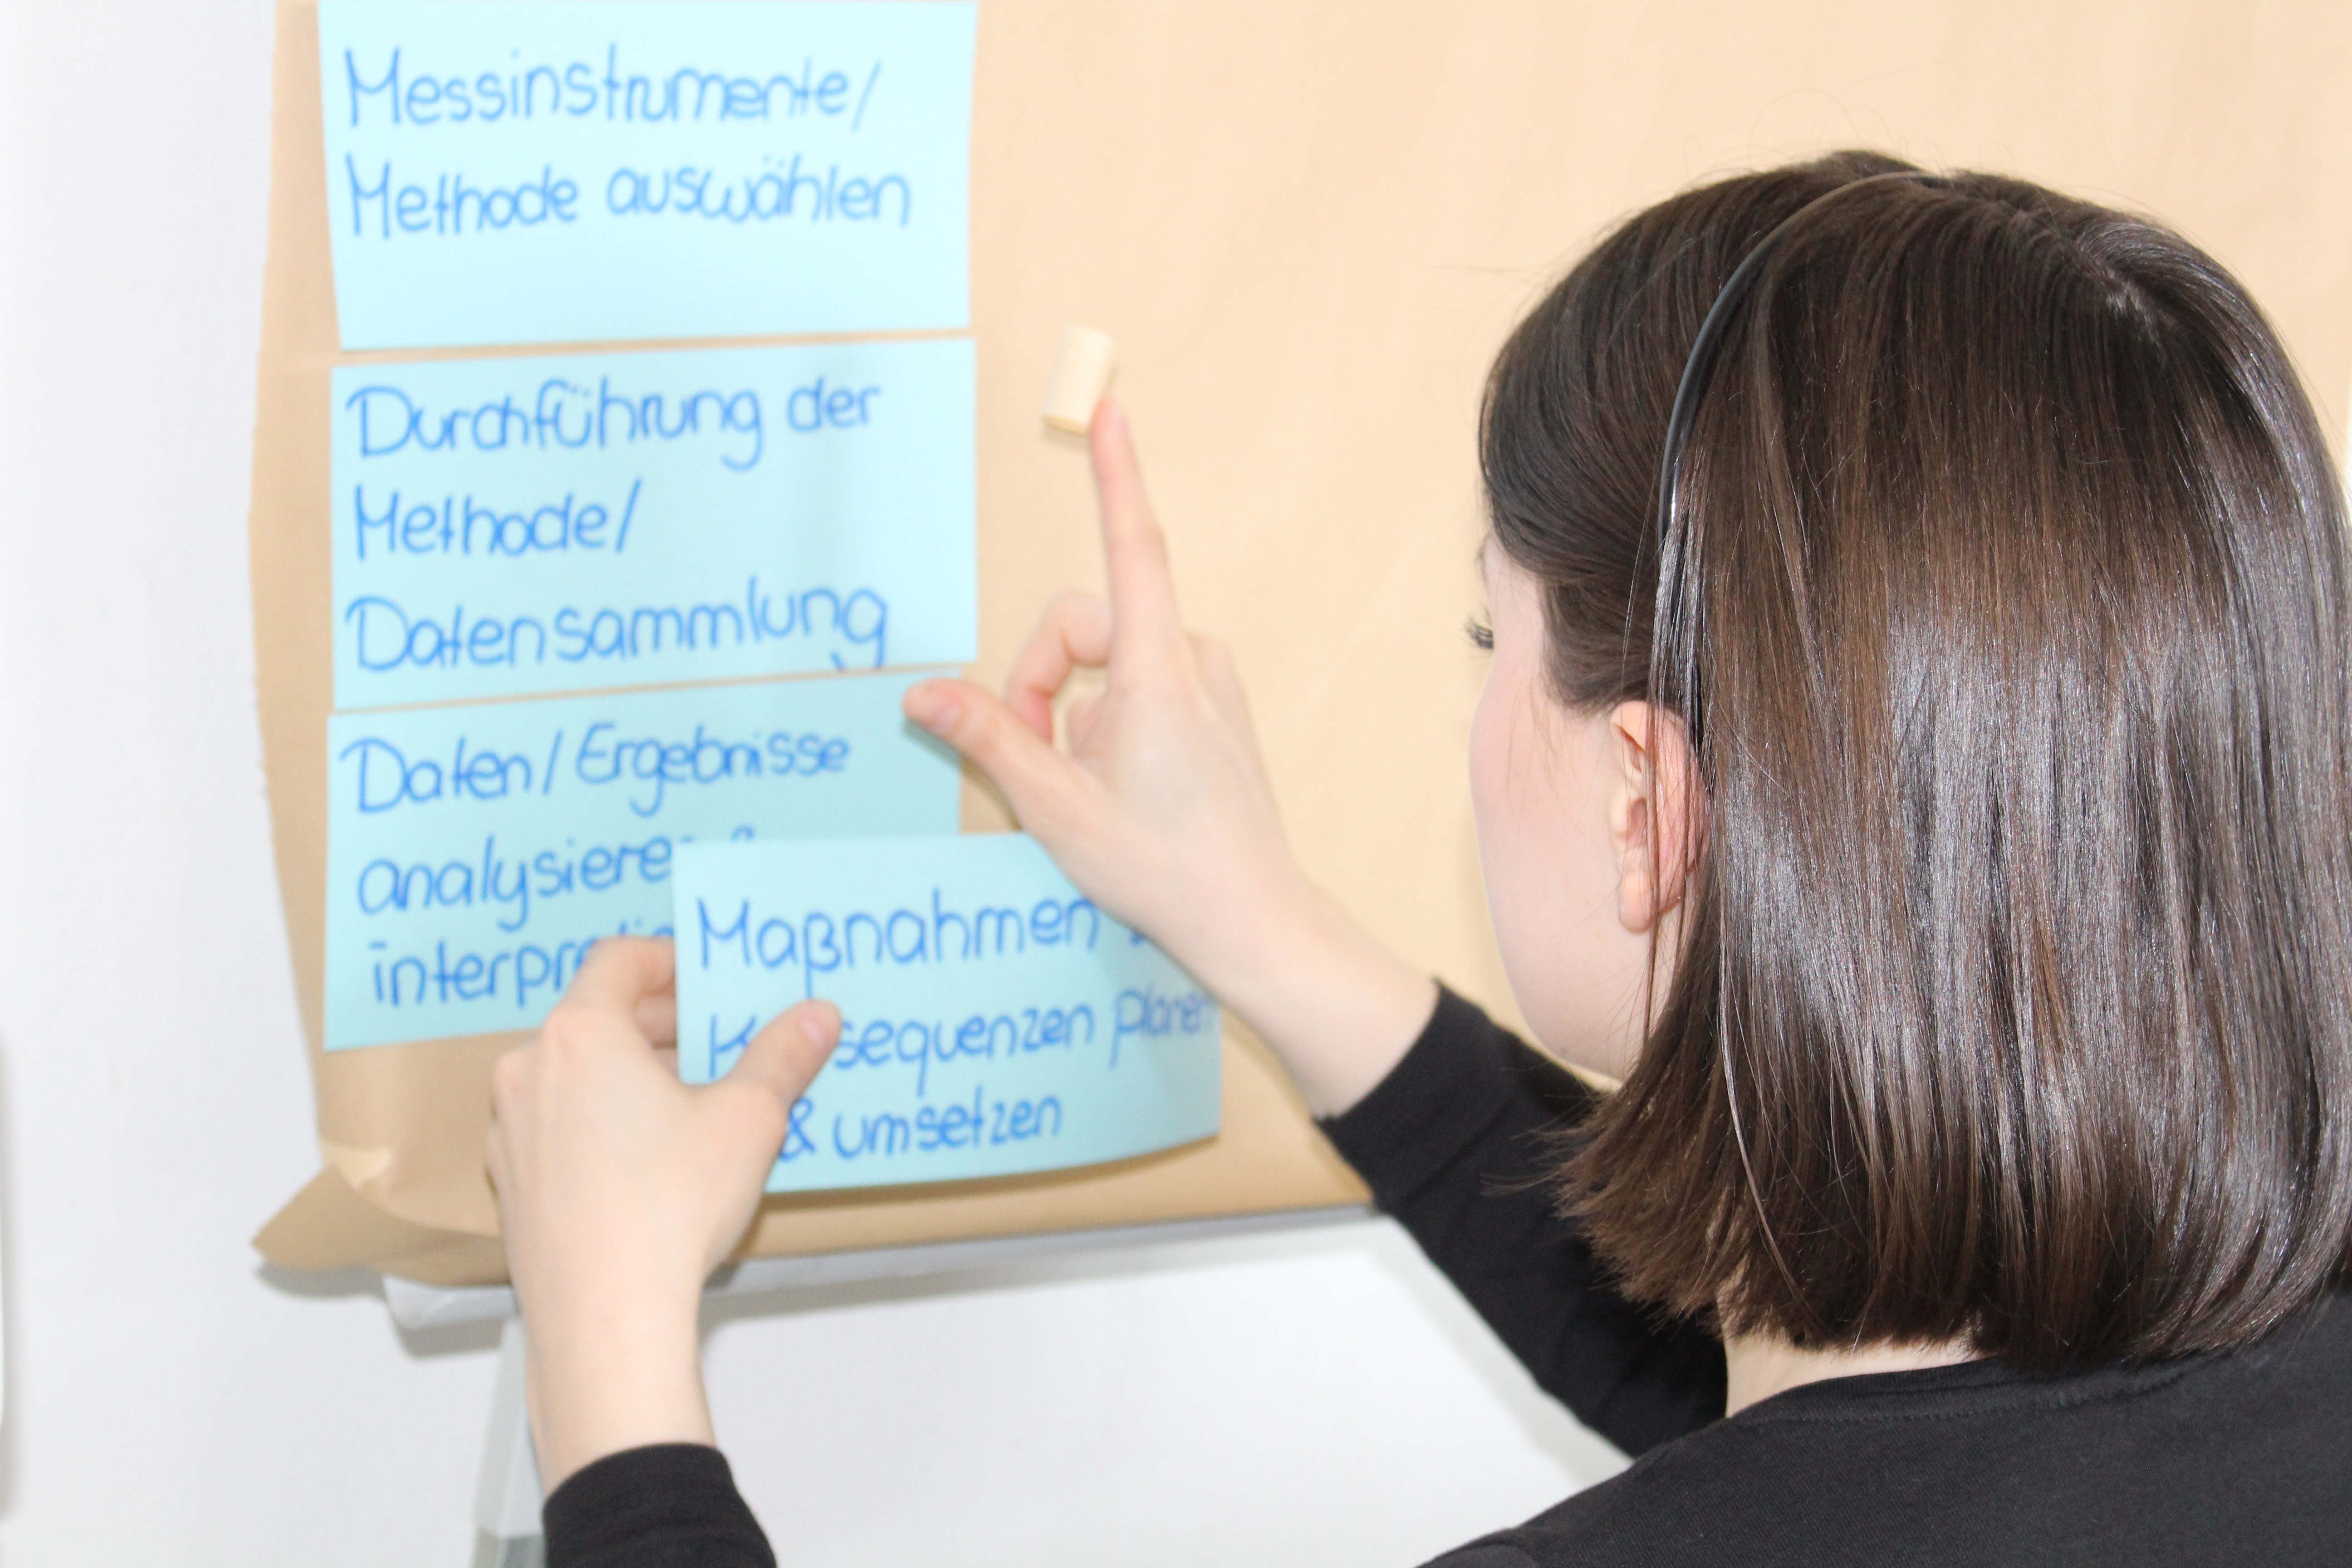 Messinstrumente/
Methode auswählen
Durchführung der
Methode/
Datensammlung
Daten/Ergebnisse
analysieren &
Maßnahmen
planen
& umsetzen